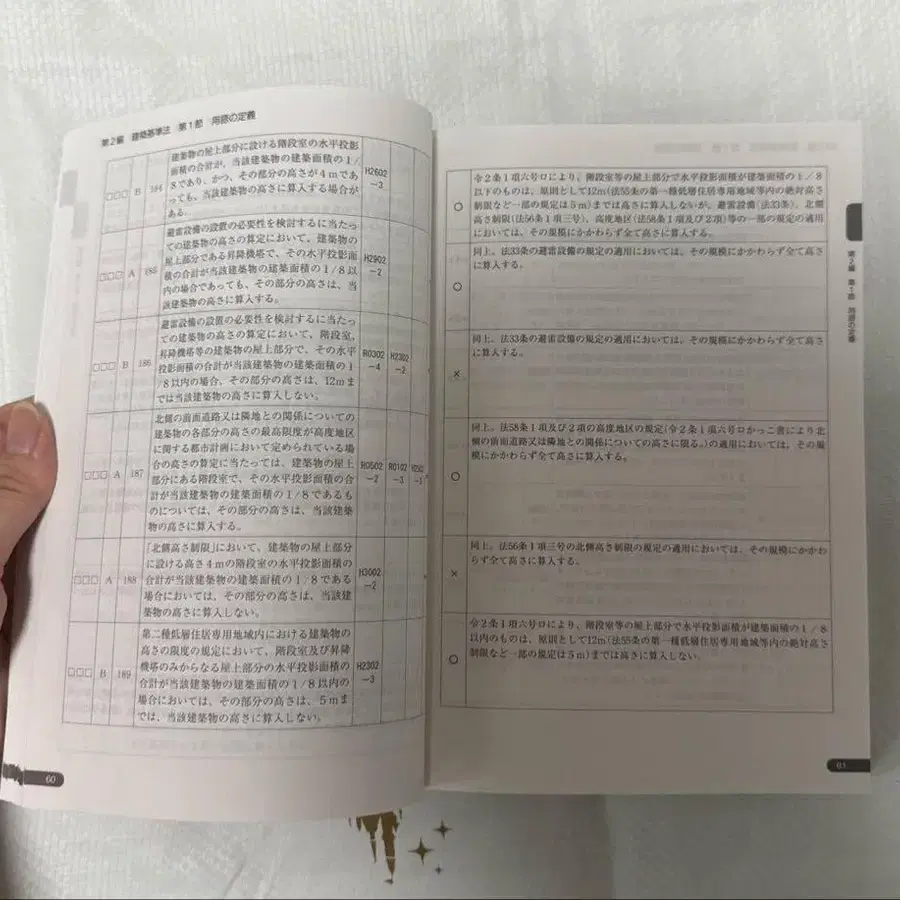 第2編 建築基準法 第1節 用語の定義
□□□ B 184
建築物の屋上部分に設ける階段室の水平投影
面積の合計が、当該建築物の建築面積の1/
8であり、かつ、その部分の高さが4mであ
っても、当該建築物の高さに算入する場合が
ある。
H2602
-3
□□□ A 185
避雷設備の設置の必要性を検討するに当たっ
ての建築物の高さの算定において、建築物の
屋上部分である昇降機塔で、その水平投影面
積の合計が当該建築物の建築面積の1/8以
内の場合であっても、その部分の高さは、当
該建築物の高さに算入する。
H2902
-2
□□□ B 186
避雷設備の設置の必要性を検討するに当たっ
ての建築物の高さの算定において、階段室、
昇降機塔等の建築物の屋上部分で、その水平
投影面積の合計が当該建築物の建築面積の1
/8以内の場合、その部分の高さは、12mま
では当該建築物の高さに算入しない。
R0302 H2302
-4 -2
□□□ A 187
北側の前面道路又は隣地との関係についての
建築物の各部分の高さの最高限度が高度地区
に関する都市計画において定められている場
合の高さの算定に当たっては、建築物の屋上
部分にある階段室で、その水平投影面積の合
計が当該建築物の建築面積の1/8であるも
のについては、その部分の高さは、当該建築
物の高さに算入する。
R0502 R0102
-2 -3 -1
□□□ A 188
「北側高さ制限」において、建築物の屋上部分
に設ける高さ4mの階段室の水平投影面積の
合計が当該建築物の建築面積の1/8である
場合においては、その部分の高さは、当該建
築物の高さに算入しない。
H3002
-2
□□□ B 189
第二種低層住居専用地域内における建築物の
高さの限度の規定において、階段室及び昇降
機塔のみからなる屋上部分の水平投影面積の
合計が当該建築物の建築面積の1/8以内の
場合においては、その部分の高さは、5mま
では、当該建築物の高さに算入しない。
H2302
-3
60
○
令2条1項六号ロにより、階段室等の屋上部分で水平投影面積が建築面積の1/8
以下のものは、原則として12m(法55条の第一種低層住居専用地域等内の絶対高さ
制限など一部の規定は5m)までは高さに算入しないが、避雷設備(法33条)、北側
高さ制限(法56条1項三号)、高度地区(法58条1項及び2項)等の一部の規定の適用
においては、その規模にかかわらず全て高さに算入する。
○
同上。法33条の避雷設備の規定の適用においては、その規模にかかわらず全て高さ
に算入する。
×
同上。法33条の避雷設備の規定の適用においては、その規模にかかわらず全て高さ
に算入する。
○
同上。法58条1項及び2項の高度地区の規定(令2条1項六号ロかっこ書により北
側の前面道路又は隣地との関係についての高さに限る。)の適用においては、その規
模にかかわらず全て高さに算入する。
×
同上。法56条1項三号の北側高さ制限の規定の適用においては、その規模にかかわ
らず全て高さに算入する。
○
令2条1項六号ロにより、階段室等の屋上部分で水平投影面積が建築面積の1/8
以内のものは、原則として12m(法55条の第一種低層住居専用地域等内の絶対高さ
制限など一部の規定は5m)までは高さに算入しない。
第2編 第1節 用語の定義
61